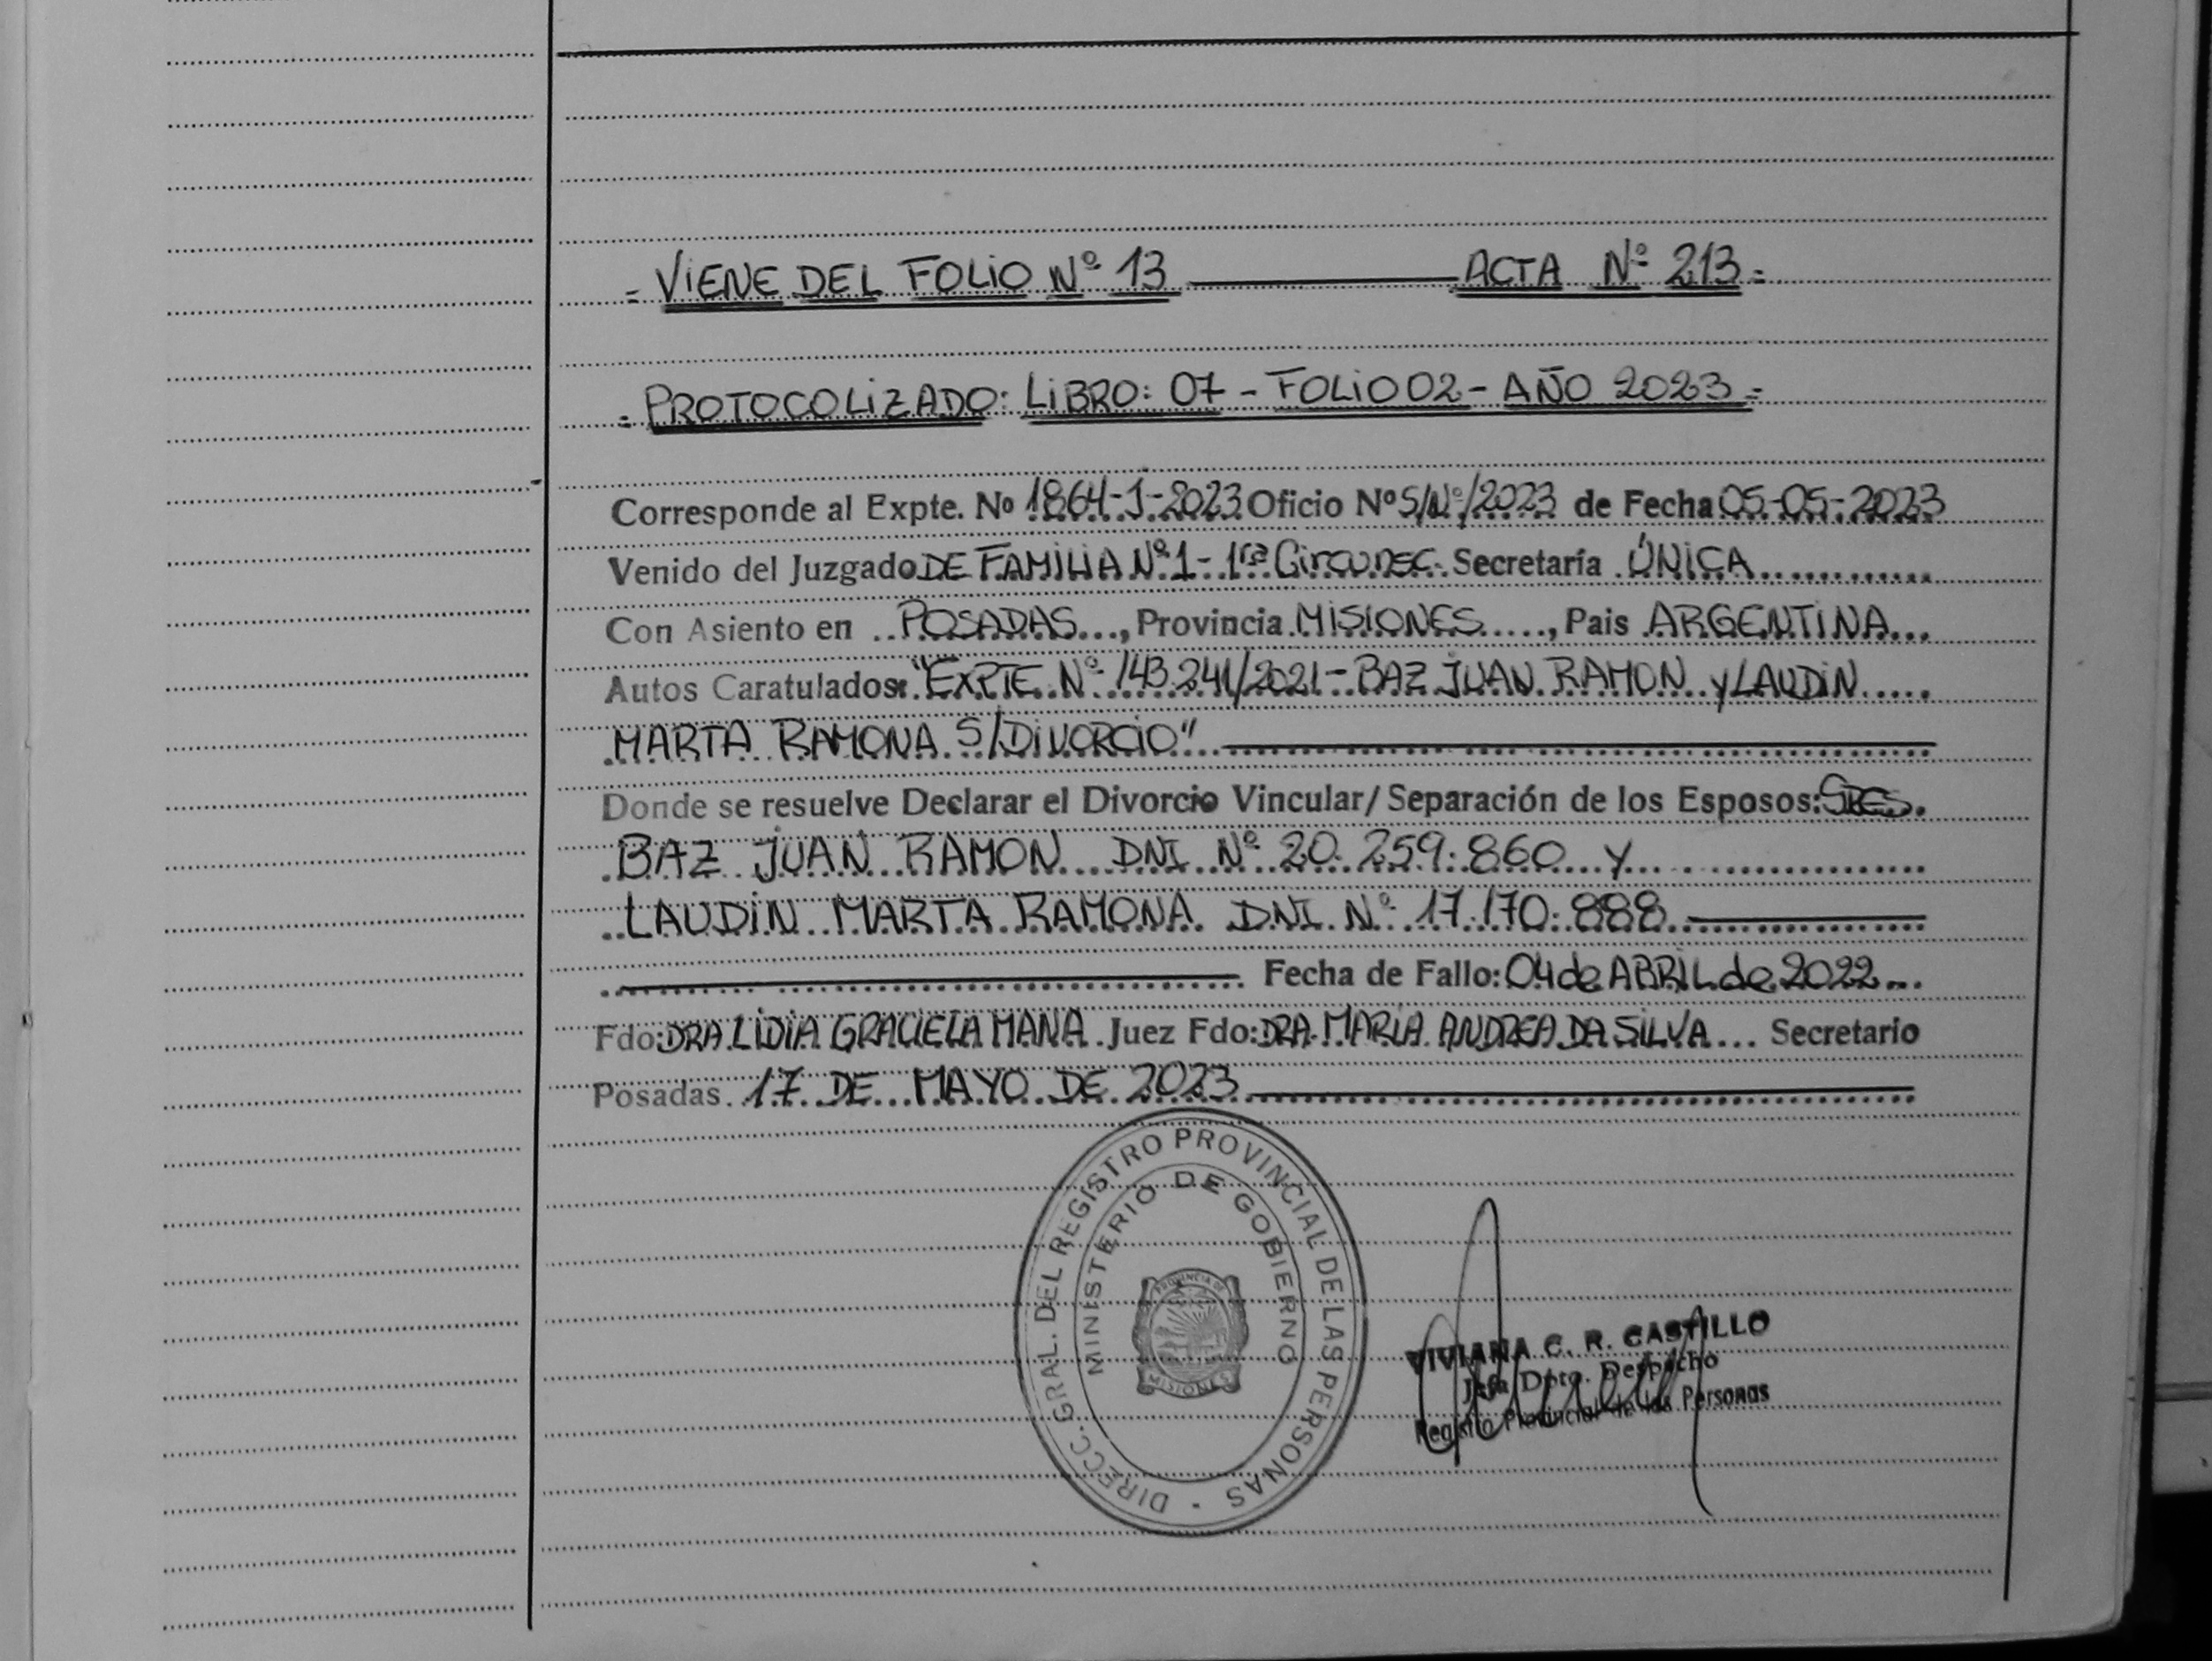 = VIENE DEL FOLIO Nº 13 ——— ACTA Nº 213 =
= PROTOCOLIZADO: LIBRO: 07 - FOLIO 02 - AÑO 2023 =
Corresponde al Expte. Nº 1864-J-2023 Oficio Nº S/Nº/2023 de Fecha 05-05-2023
Venido del Juzgado DE FAMILIA Nº 1 - 1ra Circunsc. Secretaría ÚNICA
Con Asiento en POSADAS, Provincia MISIONES, Pais ARGENTINA
Autos Caratulados: "EXPTE. Nº 143.241/2021 - BAZ JUAN RAMON y LAUDIN
MARTA RAMONA S/DIVORCIO"
Donde se resuelve Declarar el Divorcio Vincular/Separación de los Esposos: SRES.
BAZ JUAN RAMON DNI Nº 20.259.860 Y
LAUDIN MARTA RAMONA DNI Nº 17.170.888
Fecha de Fallo: 04 de ABRIL de 2022
Fdo: DRA. LIDIA GRACIELA MANA Juez Fdo: DRA. MARIA ANDREA DA SILVA Secretario
Posadas 17 DE MAYO DE 2023
DIRECC. GRAL. DEL REGISTRO PROVINCIAL DE LAS PERSONAS
MINISTERIO DE GOBIERNO
PROVINCIA DE
MISIONES
VIVIANA C. R. CASTILLO
Jefa Dpto. Despacho
Registro Provincial de las Personas